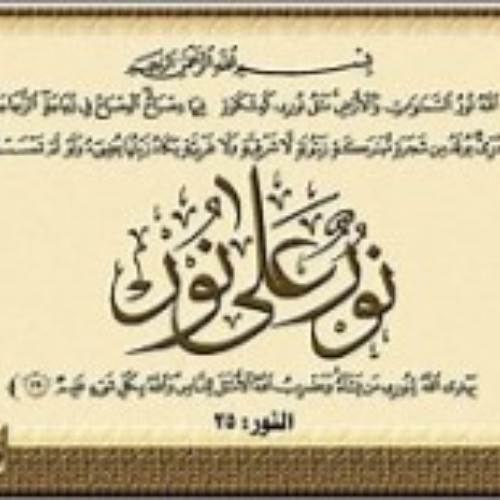 بسم الله الرحمن الرحيم
الله نور السماوات والأرض مثل نوره كمشكاة فيها مصباح المصباح في زجاجة الزجاجة
يوقد من شجرة مباركة زيتونة لا شرقية ولا غربية يكاد زيتها يضيء ولو لم تمسسه
نور على نور
يهدي الله لنوره من يشاء ويضرب الله الأمثال للناس والله بكل شيء عليم ﴿٣٥﴾
النور: ٣٥